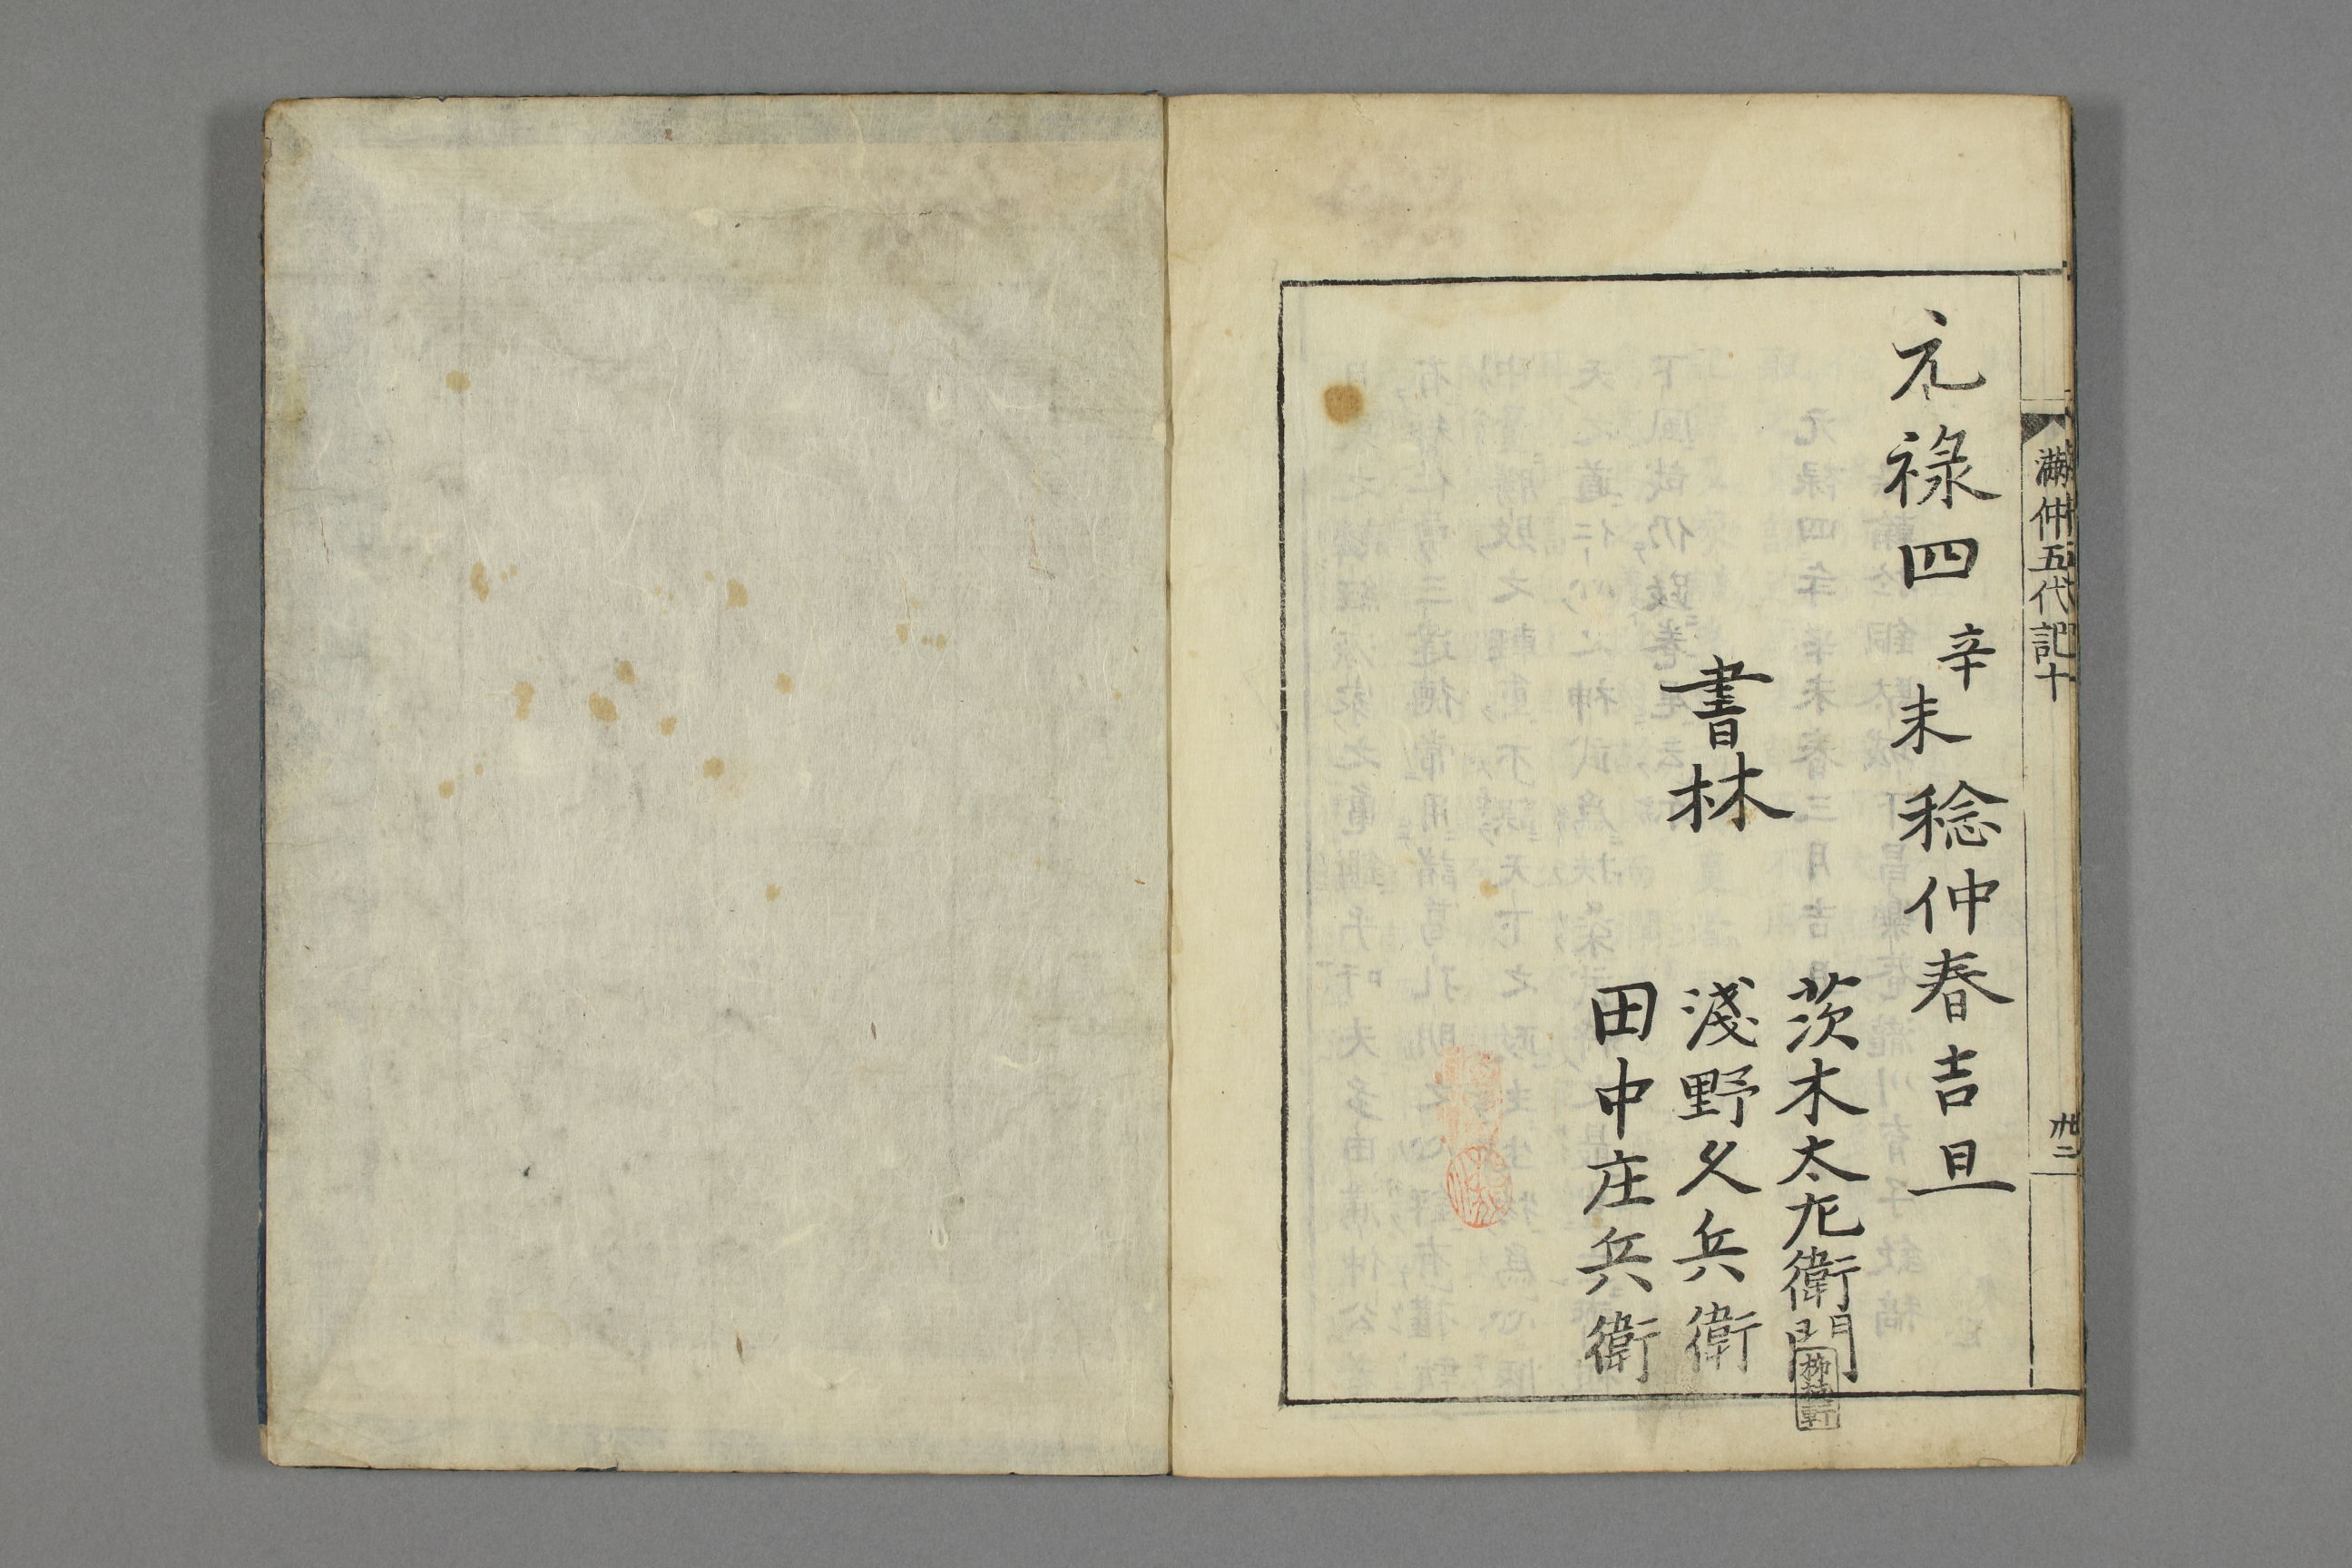 満仲五代記十
卅二
元禄四辛未稔仲春吉旦
書林
茨木太左衛門
柳枝軒
淺野久兵衛
田中庄兵衛